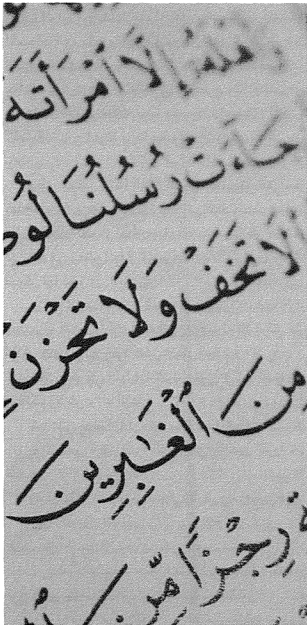 وَأَهْلَهُۥٓ إِلَّا ٱمْرَأَتَهُۥ
جَآءَتْ رُسُلُنَا لُوطًا
لَا تَخَفْ وَلَا تَحْزَنْ
مِنَ ٱلْغَٰبِرِينَ
رِجْزًا مِّنَ